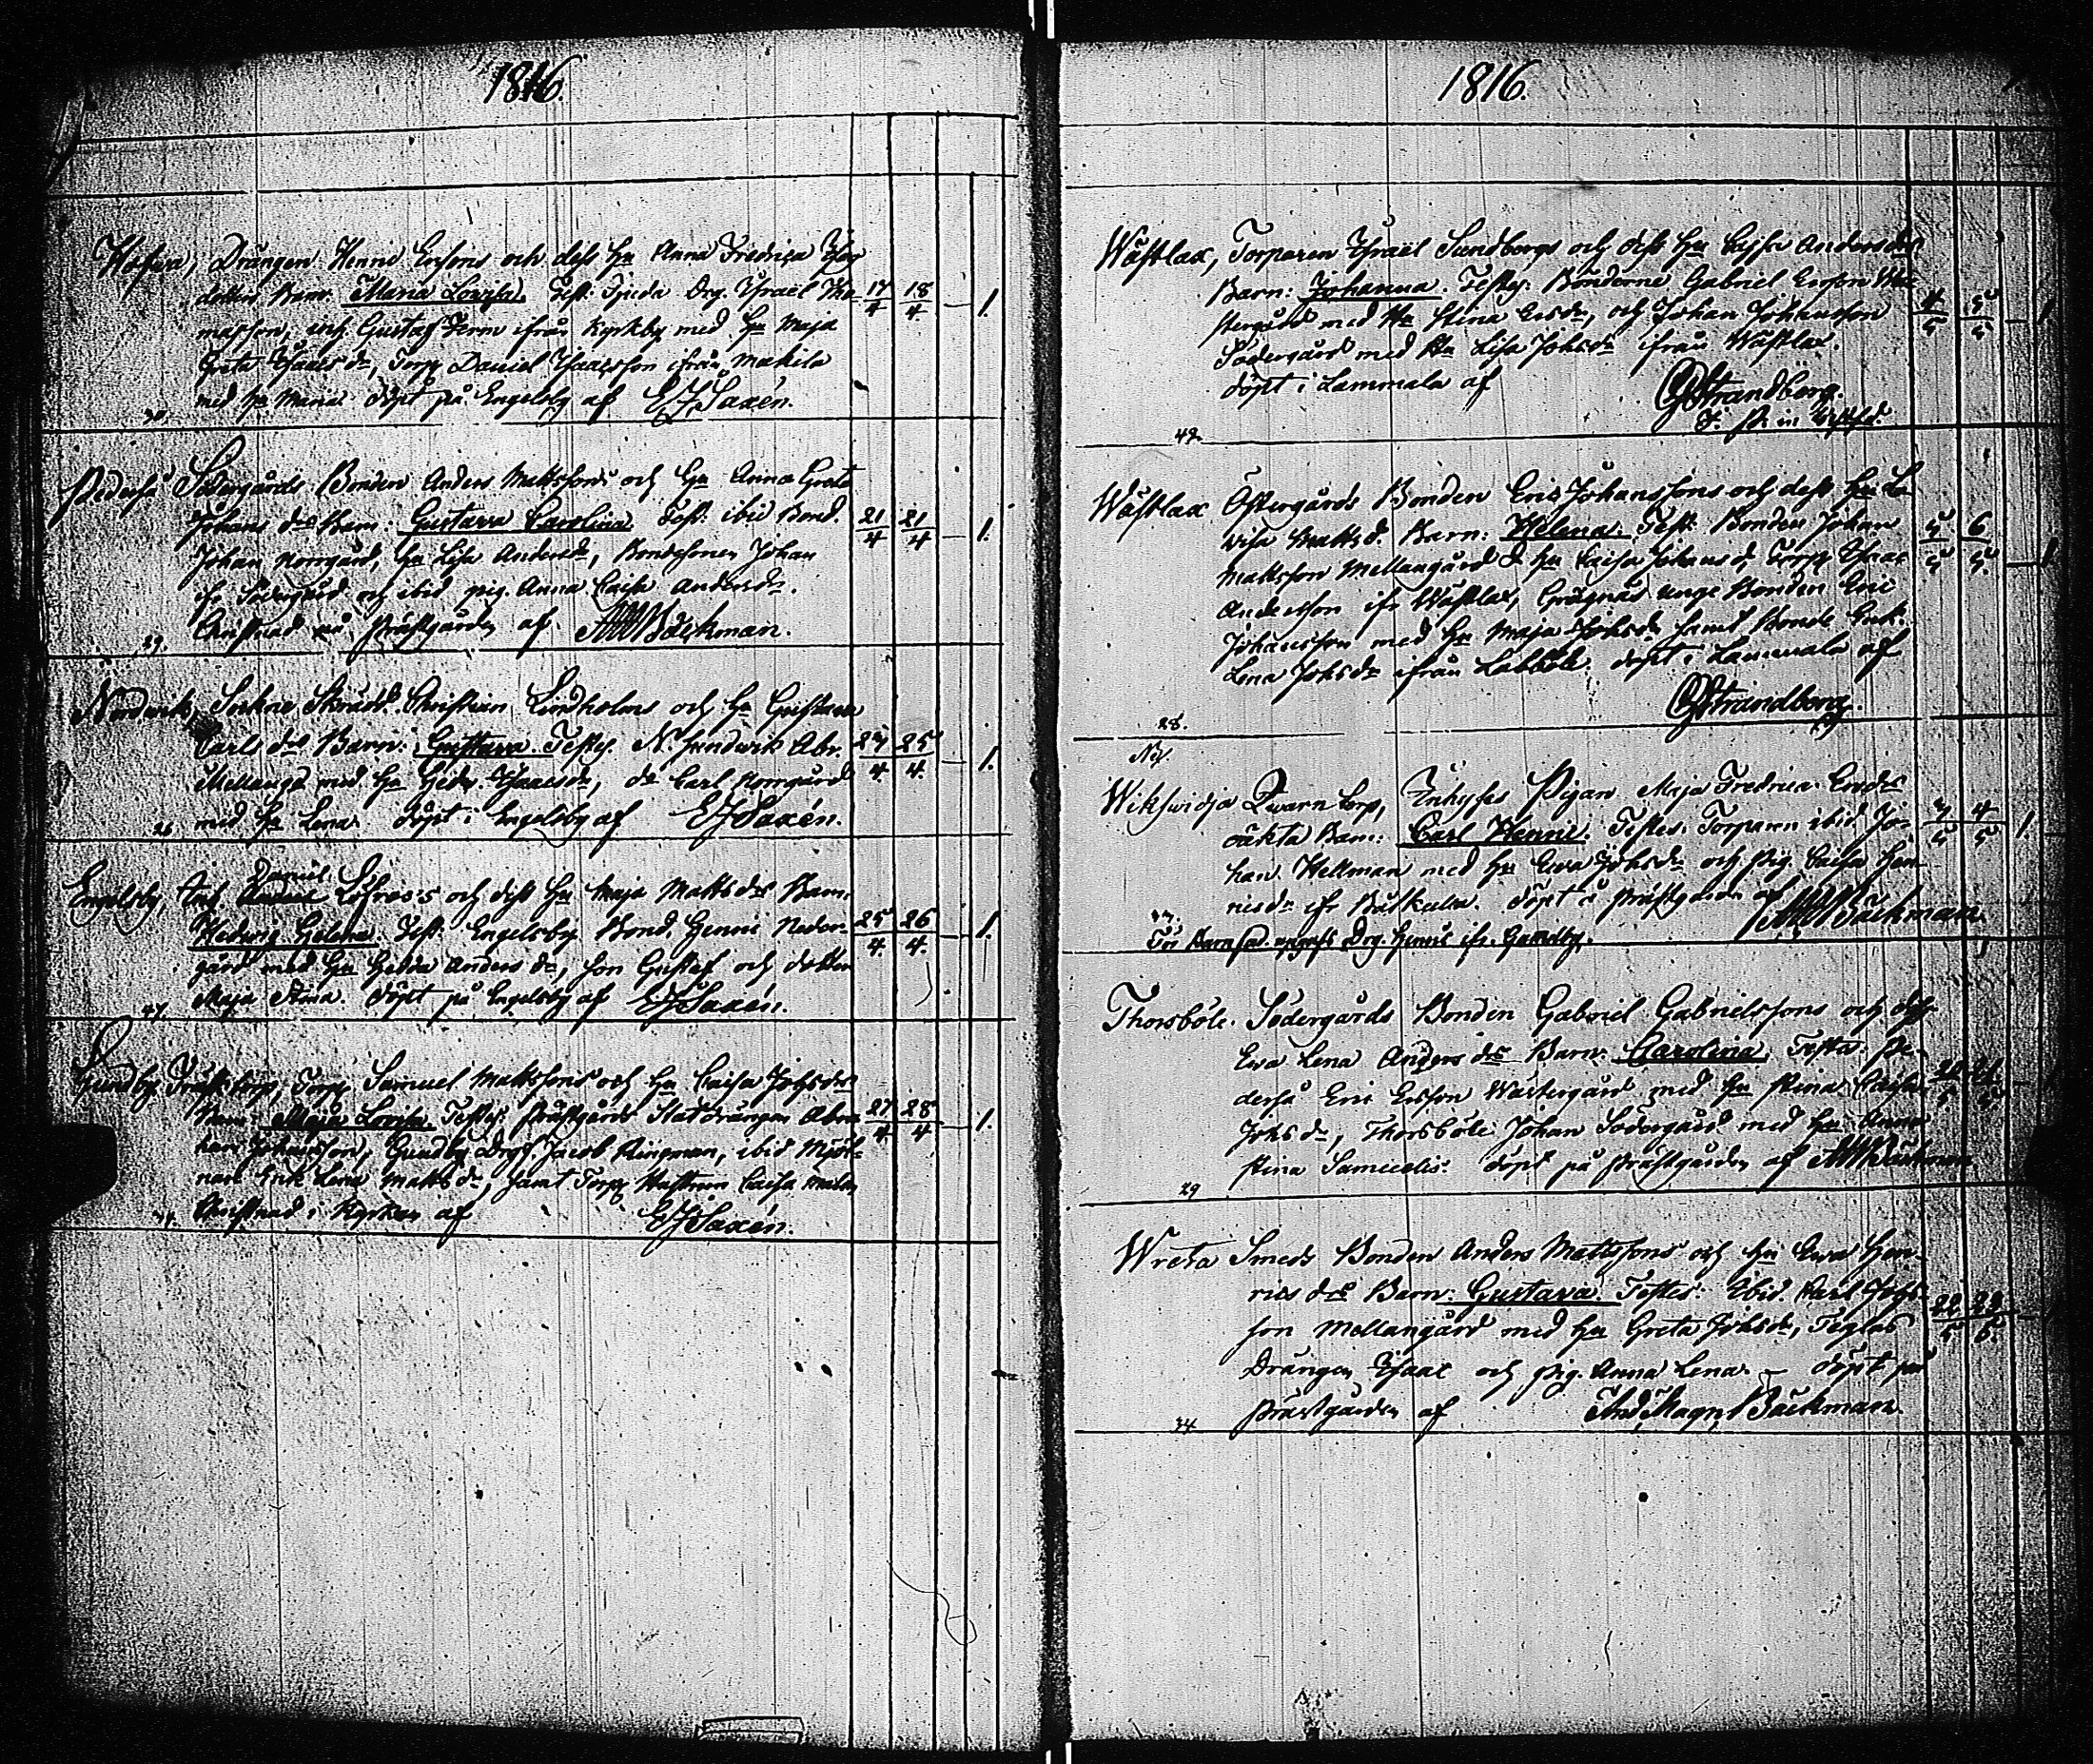 1816.
Drängen Henric Ersons och dess hu Anna Fredrica
dotters Barn: Maria Lovisa. Test: Drg. Israel Tho- 17/4 18/4 — 1.
masson, och Gustaf ifrån Kyrkby med hu Maja
Greta Isaacs dr, Torp. Daniel Isaacsson ifrån Makila
med hu Maria döpt på Engelsby af EJSaxén.
Pederså Södergårds Bonden Anders Mattssons och hu Anna Greta
Johans drs Barn: Gustava Carolina. Test: ibid Bond. 21/4 21/4 — 1.
Johan Norrgård, hu Lisa Andersdr, Bondesonen Johan
ifr Södergård och ibid pig. Anna Caisa Andersdr.
29. Christnad på Prästgården af AMBäckman.
Nordwik, Sockne Skrädd. Christian Lindholms och hu Gustava
Carls drs Barn: Gustava. Testes. N. Sundwik Abr. 24/4 25/4 — 1.
Mellang. med hu Hedv. Isaacsdr, do Carl Norrgård
26. med hu Lena. döpt i Engelsby af EJSaxén.
Daniel
Engelsby, Löfroos's och dess hu Maja Matts drs Barn:
Hedwig Helena. Test: Engelsby Bond. Henric Neder- 25/4 26/4 — 1.
gård med hu Hedda Anders dr, son Gustaf och dotter
Maja Stina. döpt på Engelsby af EJSaxén.
47.
Gundby, Torp. Samuel Mattssons och hu Caisa Johsdrs
Barn: Maja Lovisa. Testes: Prästgårds Statdrängen Abra- 27/4 28/4 — 1.
ham Johansson, Gundby Drg. Jacob Ringman, ibid Mjöl-
nare Enk. Lena Matts dr, samt Torp. Caisa
Christnad i Kyrkan af EJSaxén.
1816.
Wästlax, Torparen Israël Sundbergs och dess hu Cajsa Andersdrs
Barn: Johanna. Testes: Bönderne Gabriel Ersson Wä- 4/5 5/5 — 1.
stergård med hu Stina Ersdr, och Johan Johansson
Södergård med hu Lisa Johsdr ifrån Wästlax.
döpt i Lammala af Strandberg.
42.
Wästlax Östergårds Bonden Eric Johanssons och dess hu Lo-
visa Mattsd. Barn: Helena. Test: Bonden Johan 5/5 6/5 — 1
Mattsson Mellangård & hu Caisa Johans d, Torp. Isaac
Andersson ifr Wästlax, Grägnäs unge Bonden Eric
Johansson med hu Maja Johsdr samt Bonde Enk.
Lena Johsdr ifrån Labböle. döpt i Lammala af
Strandberg.
28.
Wikswidja Qwarn torp, Inhyses Pigan Maja Fredrica Ersdrs
oäkta Barn: Carl Henric. Testes: Torparen ibid Jo- 3/5 4/5 1.
han Hellman med hu Ewa Johsdr och Pig. Caisa Hen-
ricsdr ifr döpt i Prästgården af AMBäckman
Til Barnfad. uppgifs Drg. Henric ifr. Gundby.
Thorsböle. Södergårds Bonden Gabriel Gabrielssons och dess
Ewa Lena Anders drs Barn: Carolina. Testes: Pe-
derså Eric Ersson Wästergård med hu Stina Caisa
Johs dr, Thorsböle Johan Södergård med hu Anna
Stina Samuelis. döpt på Prästgården af AMBäckman
29
Wreta Smeds Bonden Anders Mattssons och hu Ewa Hen-
rics drs Barn: Gustava. Testes: Ibid. Carl Johs-
son Mellangård med hu Greta Johsdr, 22/5 23/5
Drängen Isaac och pig. Anna Lena. — döpt på
34 Prästgården af And. Magn. Bäckman.